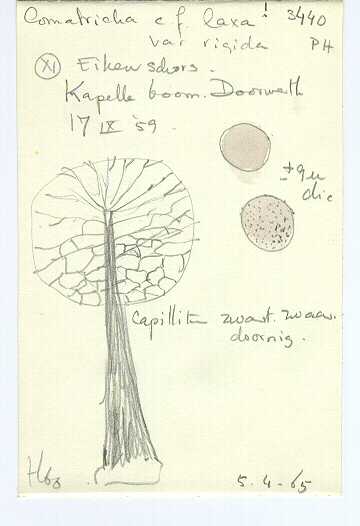 Comatricha c.f. laxa! 3440
var rigida PH
XI Eikenschors.
Kapelle boom. Doorwerth
17 IX '59.
± 9 µ
dic
Capillitm zwart. zwaar.
doornig.
5.4-65